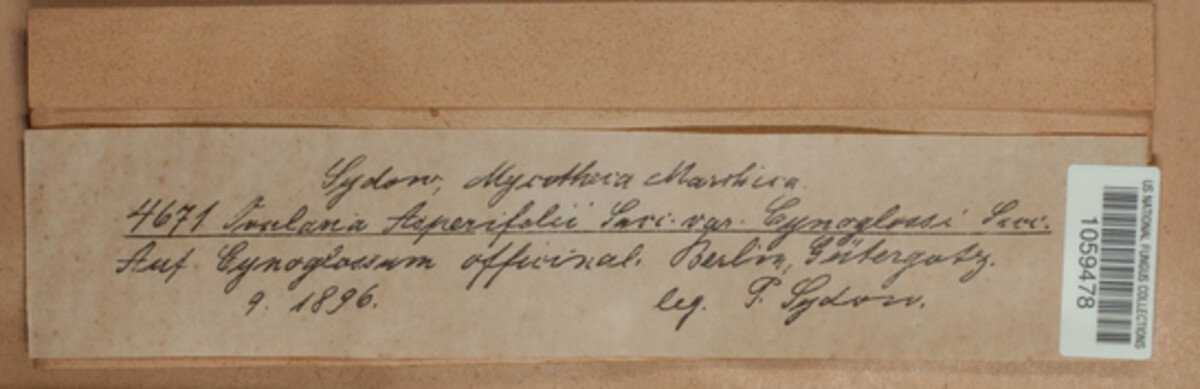 Sydow, Mycotheca Marchica.
4671 Ovularia Asperifolii Sacc. var. Cynoglossi Sacc.
Auf Cynoglossum officinal. Berlin, Gütergotz.
9. 1896. leg. P. Sydow.
US NATIONAL FUNGUS COLLECTIONS
1059478